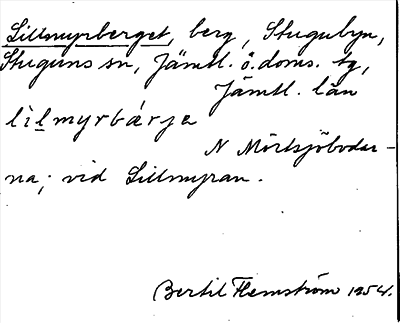 Lillmyrberget, berg, Stugubyn,
Stuguns sn, Jämtl. ö. doms. tg,
Jämtl. län
lìlmyrbǽrje
N Mörtsjöbodar-
na; vid Lillmyran.
Bertil Flemström 1954.